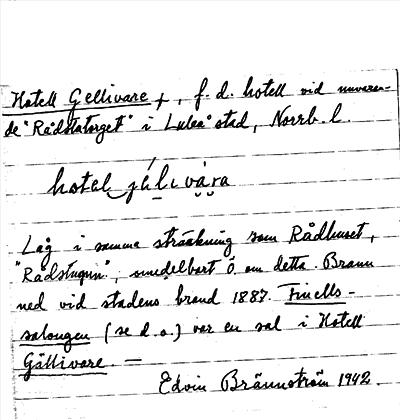 Hotell Gellivare †, f. d. hotell vid nuvaran-
de "Rådstutorget" i Luleå stad, Norrb. l.
hotel jälivàra
Låg i samma sträckning som Rådhuset,
"Rådstugun", omedelbart Ö. om detta. Brann
ned vid stadens brand 1887. Finells-
salongen (se d. o.) var en sal i Hotell
Gällivare. —
Edvin Brännström 1942.